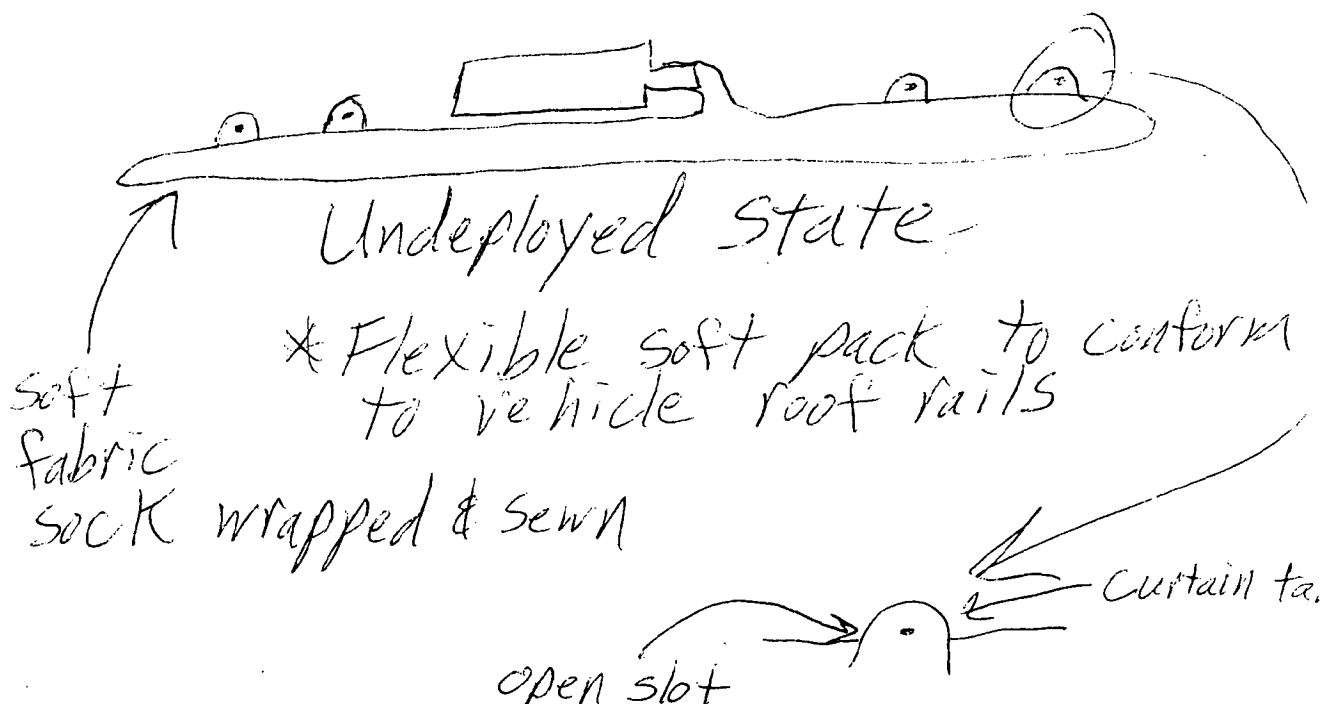 Undeployed state
* Flexible soft pack to conform
to vehicle roof rails
soft
fabric
sock wrapped & sewn
Curtain ta
open slot